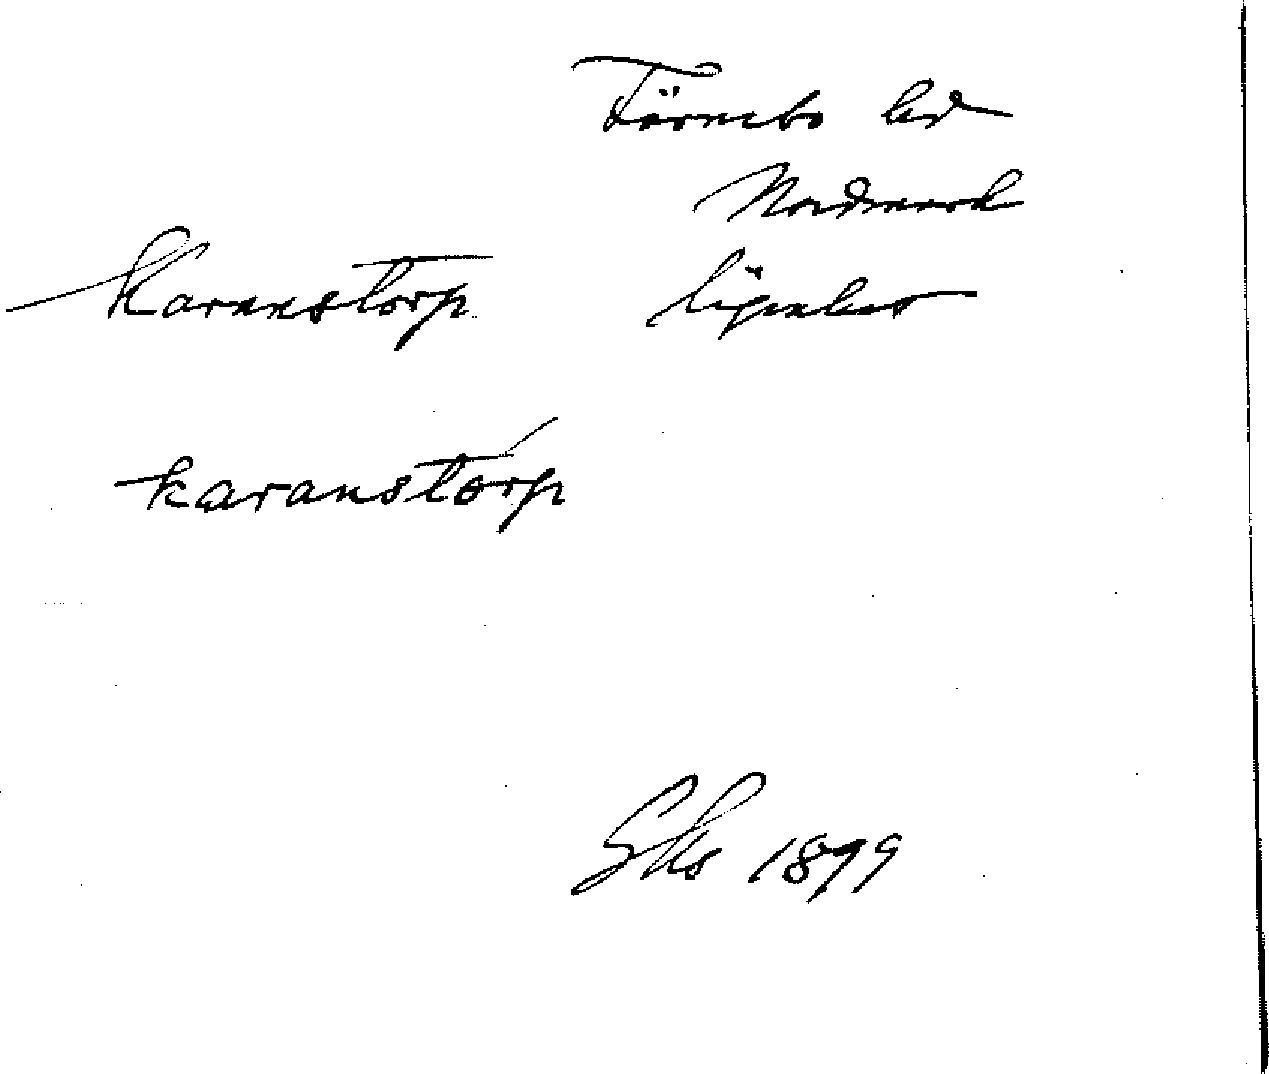 Färnebo hd
Nordmark
Karanstorp lägenhet
karanstorp
Gks 1899